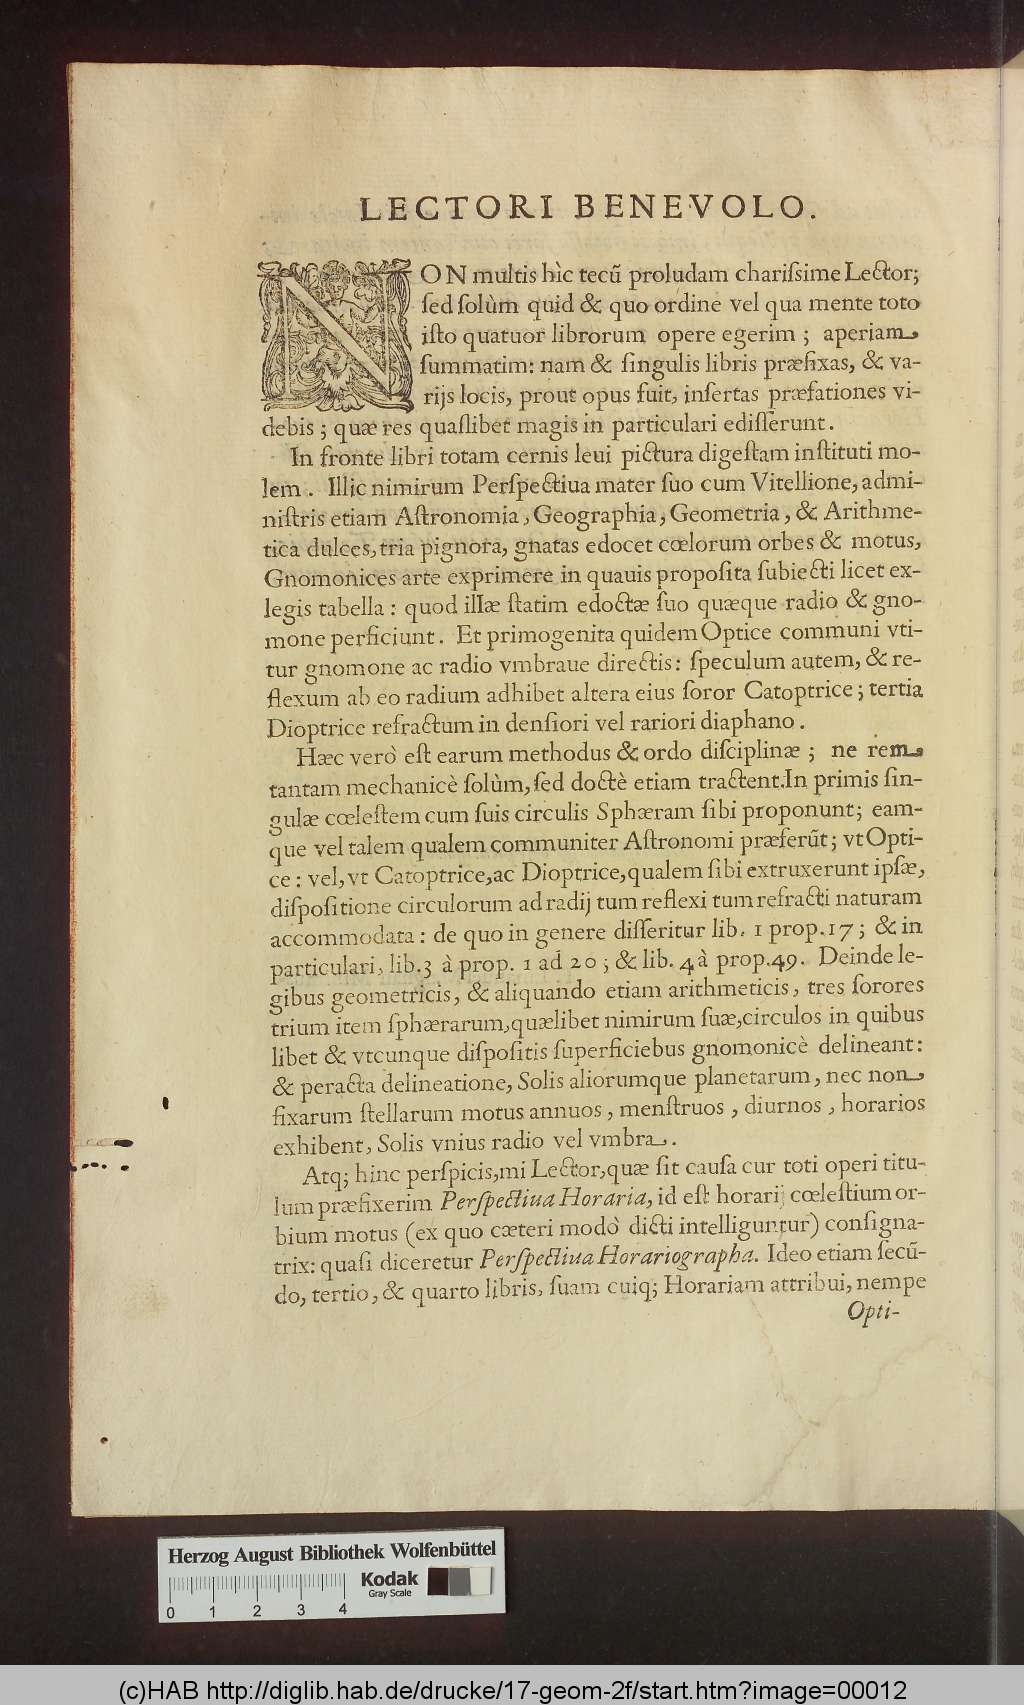 LECTORI BENEVOLO.
NON multis hìc tecũ proludam chariſsime Lector;
ſed ſolùm quid & quo ordine vel qua mente toto
iſto quatuor librorum opere egerim ; aperiam
ſummatim: nam & ſingulis libris præfixas, & va-
rijs locis, prout opus fuit, inſertas præfationes vi-
debis ; quæ res quaſlibet magis in particulari ediſſerunt.
In fronte libri totam cernis leui pictura digeſtam inſtituti mo-
lem. Illic nimirum Perſpectiua mater ſuo cum Vitellione, admi-
niſtris etiam Aſtronomia, Geographia, Geometria, & Arithme-
tica dulces, tria pignora, gnatas edocet cœlorum orbes & motus,
Gnomonices arte exprimere in quauis propoſita ſubiecti licet ex-
legis tabella : quod illæ ſtatim edoctæ ſuo quæque radio & gno-
mone perficiunt. Et primogenita quidem Optice communi vti-
tur gnomone ac radio vmbraue directis: ſpeculum autem, & re-
flexum ab eo radium adhibet altera eius ſoror Catoptrice ; tertia
Dioptrice refractum in denſiori vel rariori diaphano.
Hæc verò eſt earum methodus & ordo diſciplinæ ; ne rem
tantam mechanicè ſolùm, ſed doctè etiam tractent. In primis ſin-
gulæ cœleſtem cum ſuis circulis Sphæram ſibi proponunt; eam-
que vel talem qualem communiter Aſtronomi præferũt; vt Opti-
ce : vel, vt Catoptrice, ac Dioptrice, qualem ſibi extruxerunt ipſæ,
diſpoſitione circulorum ad radij tum reflexi tum refracti naturam
accommodata : de quo in genere diſſeritur lib. 1 prop. 17 ; & in
particulari, lib. 3 à prop. 1 ad 20 ; & lib. 4 à prop. 49. Deinde le-
gibus geometricis, & aliquando etiam arithmeticis, tres ſorores
trium item ſphærarum, quælibet nimirum ſuæ, circulos in quibus
libet & vtcunque diſpoſitis ſuperficiebus gnomonicè delineant:
& peracta delineatione, Solis aliorumque planetarum, nec non
fixarum ſtellarum motus annuos, menſtruos, diurnos, horarios
exhibent, Solis vnius radio vel vmbra.
Atq; hinc perſpicis, mi Lector, quæ ſit cauſa cur toti operi titu-
lum præfixerim Perſpectiua Horaria, id eſt horarij cœleſtium or-
bium motus (ex quo cæteri modò dicti intelliguntur) conſigna-
trix: quaſi diceretur Perſpectiua Horariographa. Ideo etiam ſecũ-
do, tertio, & quarto libris, ſuam cuiq; Horariam attribui, nempe
Opti-
Herzog August Bibliothek Wolfenbüttel
Kodak
Gray Scale
0 1 2 3 4
(c)HAB http://diglib.hab.de/drucke/17-geom-2f/start.htm?image=00012